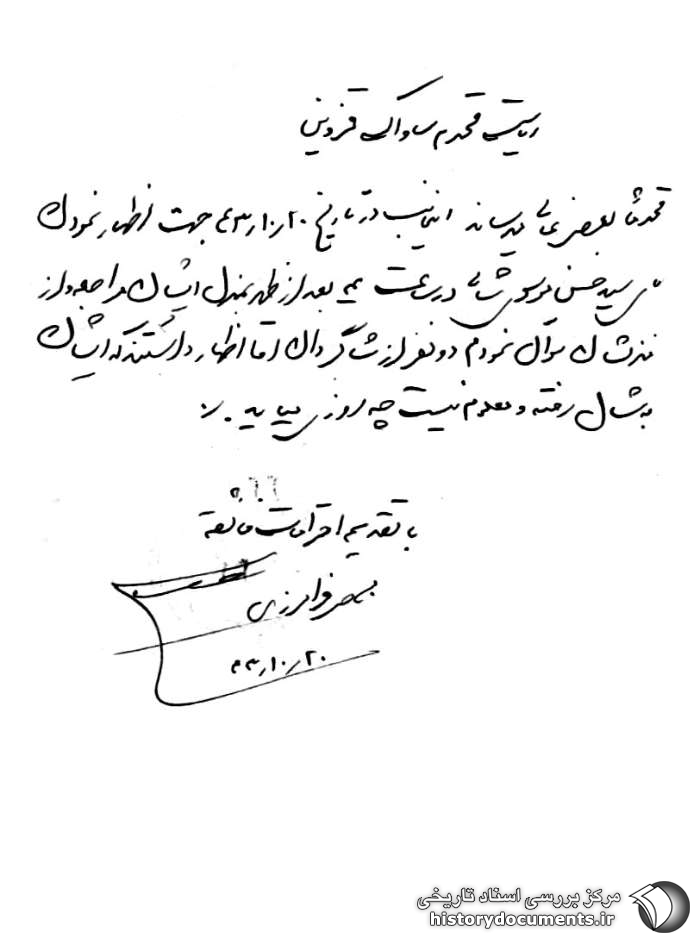 ریاست محترم ساواک قزوین
محترماً بعرض عالی میرساند اینجانب در تاریخ ۴۳/۱۰/۲۰ جهت اظهار نمودن
سید حسن موسوی شالی در ساعت ۴ بعد از ظهر بمنزل ایشان مراجعه و از
منزلشان سؤال نمودم دو نفر از شاگردان آقا اظهار داشتند که ایشان
به شال رفته و معلوم نیست چه روزی میاید.
با تقدیم احترامات فائقه
فرامرزی
۴۳/۱۰/۲۰
مرکز بررسی اسناد تاریخی
historydocuments.ir